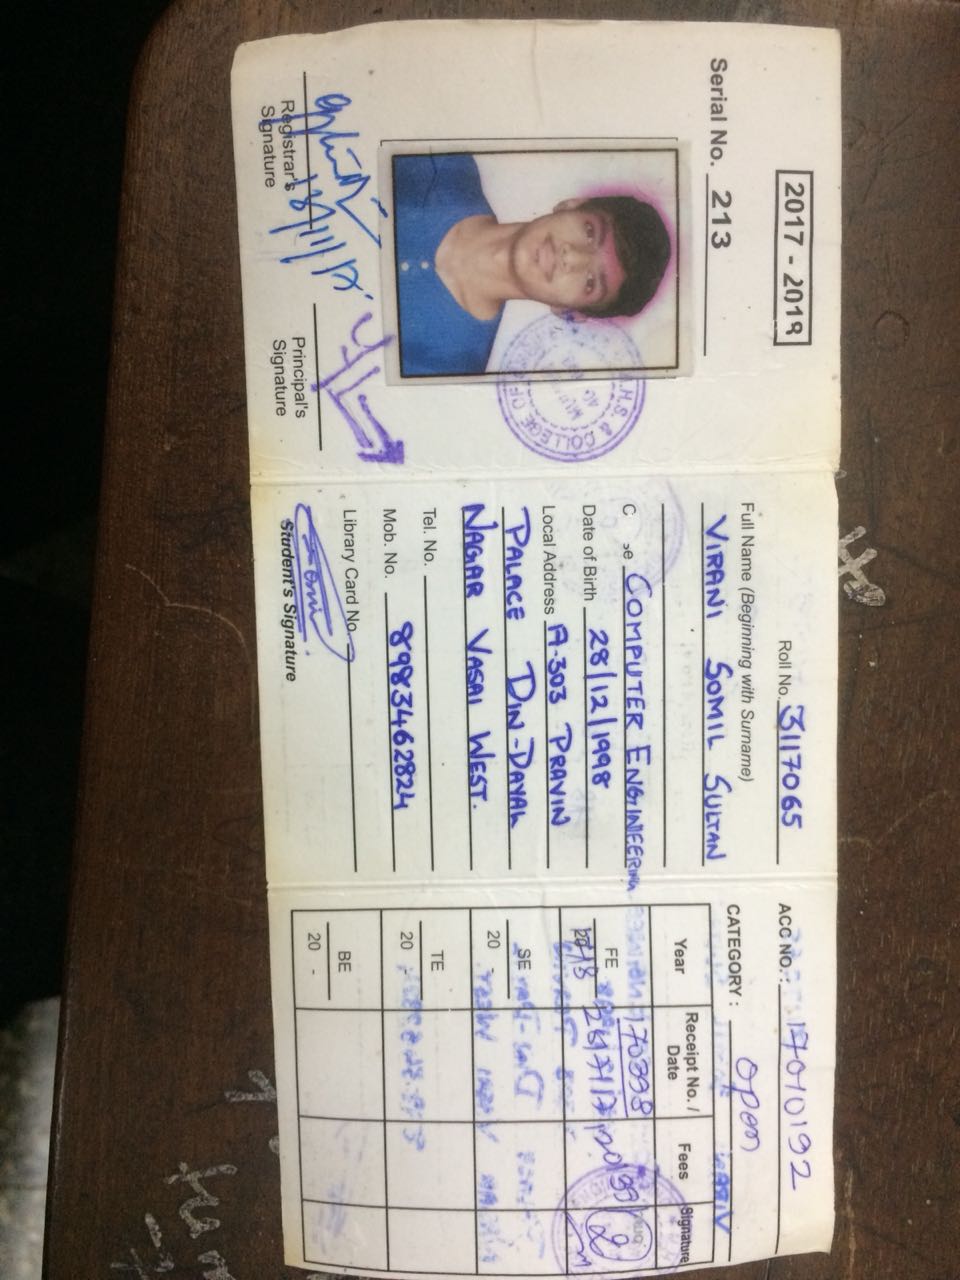 2017 - 2018
Serial No. 213
Registrar's Signature
18/11/17
Principal's Signature
H.S. & COLLEGE OF
Roll No. 3117065
Full Name (Beginning with Surname)
VIRANI SOMIL SULTAN
C se COMPUTER ENGINEERING
Date of Birth 28/12/1998
Local Address A-303 PRAVIN
PALACE DIN-DAYAL
NAGAR VASAI WEST.
Tel. No.
Mob. No. 8983462824
Library Card No.
Student's Signature
ACC NO.: 17010192
CATEGORY: open
Year Receipt No. / Date Fees Signature
FE 2017/18 170398 26/7/17
SE 20 -
TE 20 -
BE 20 -